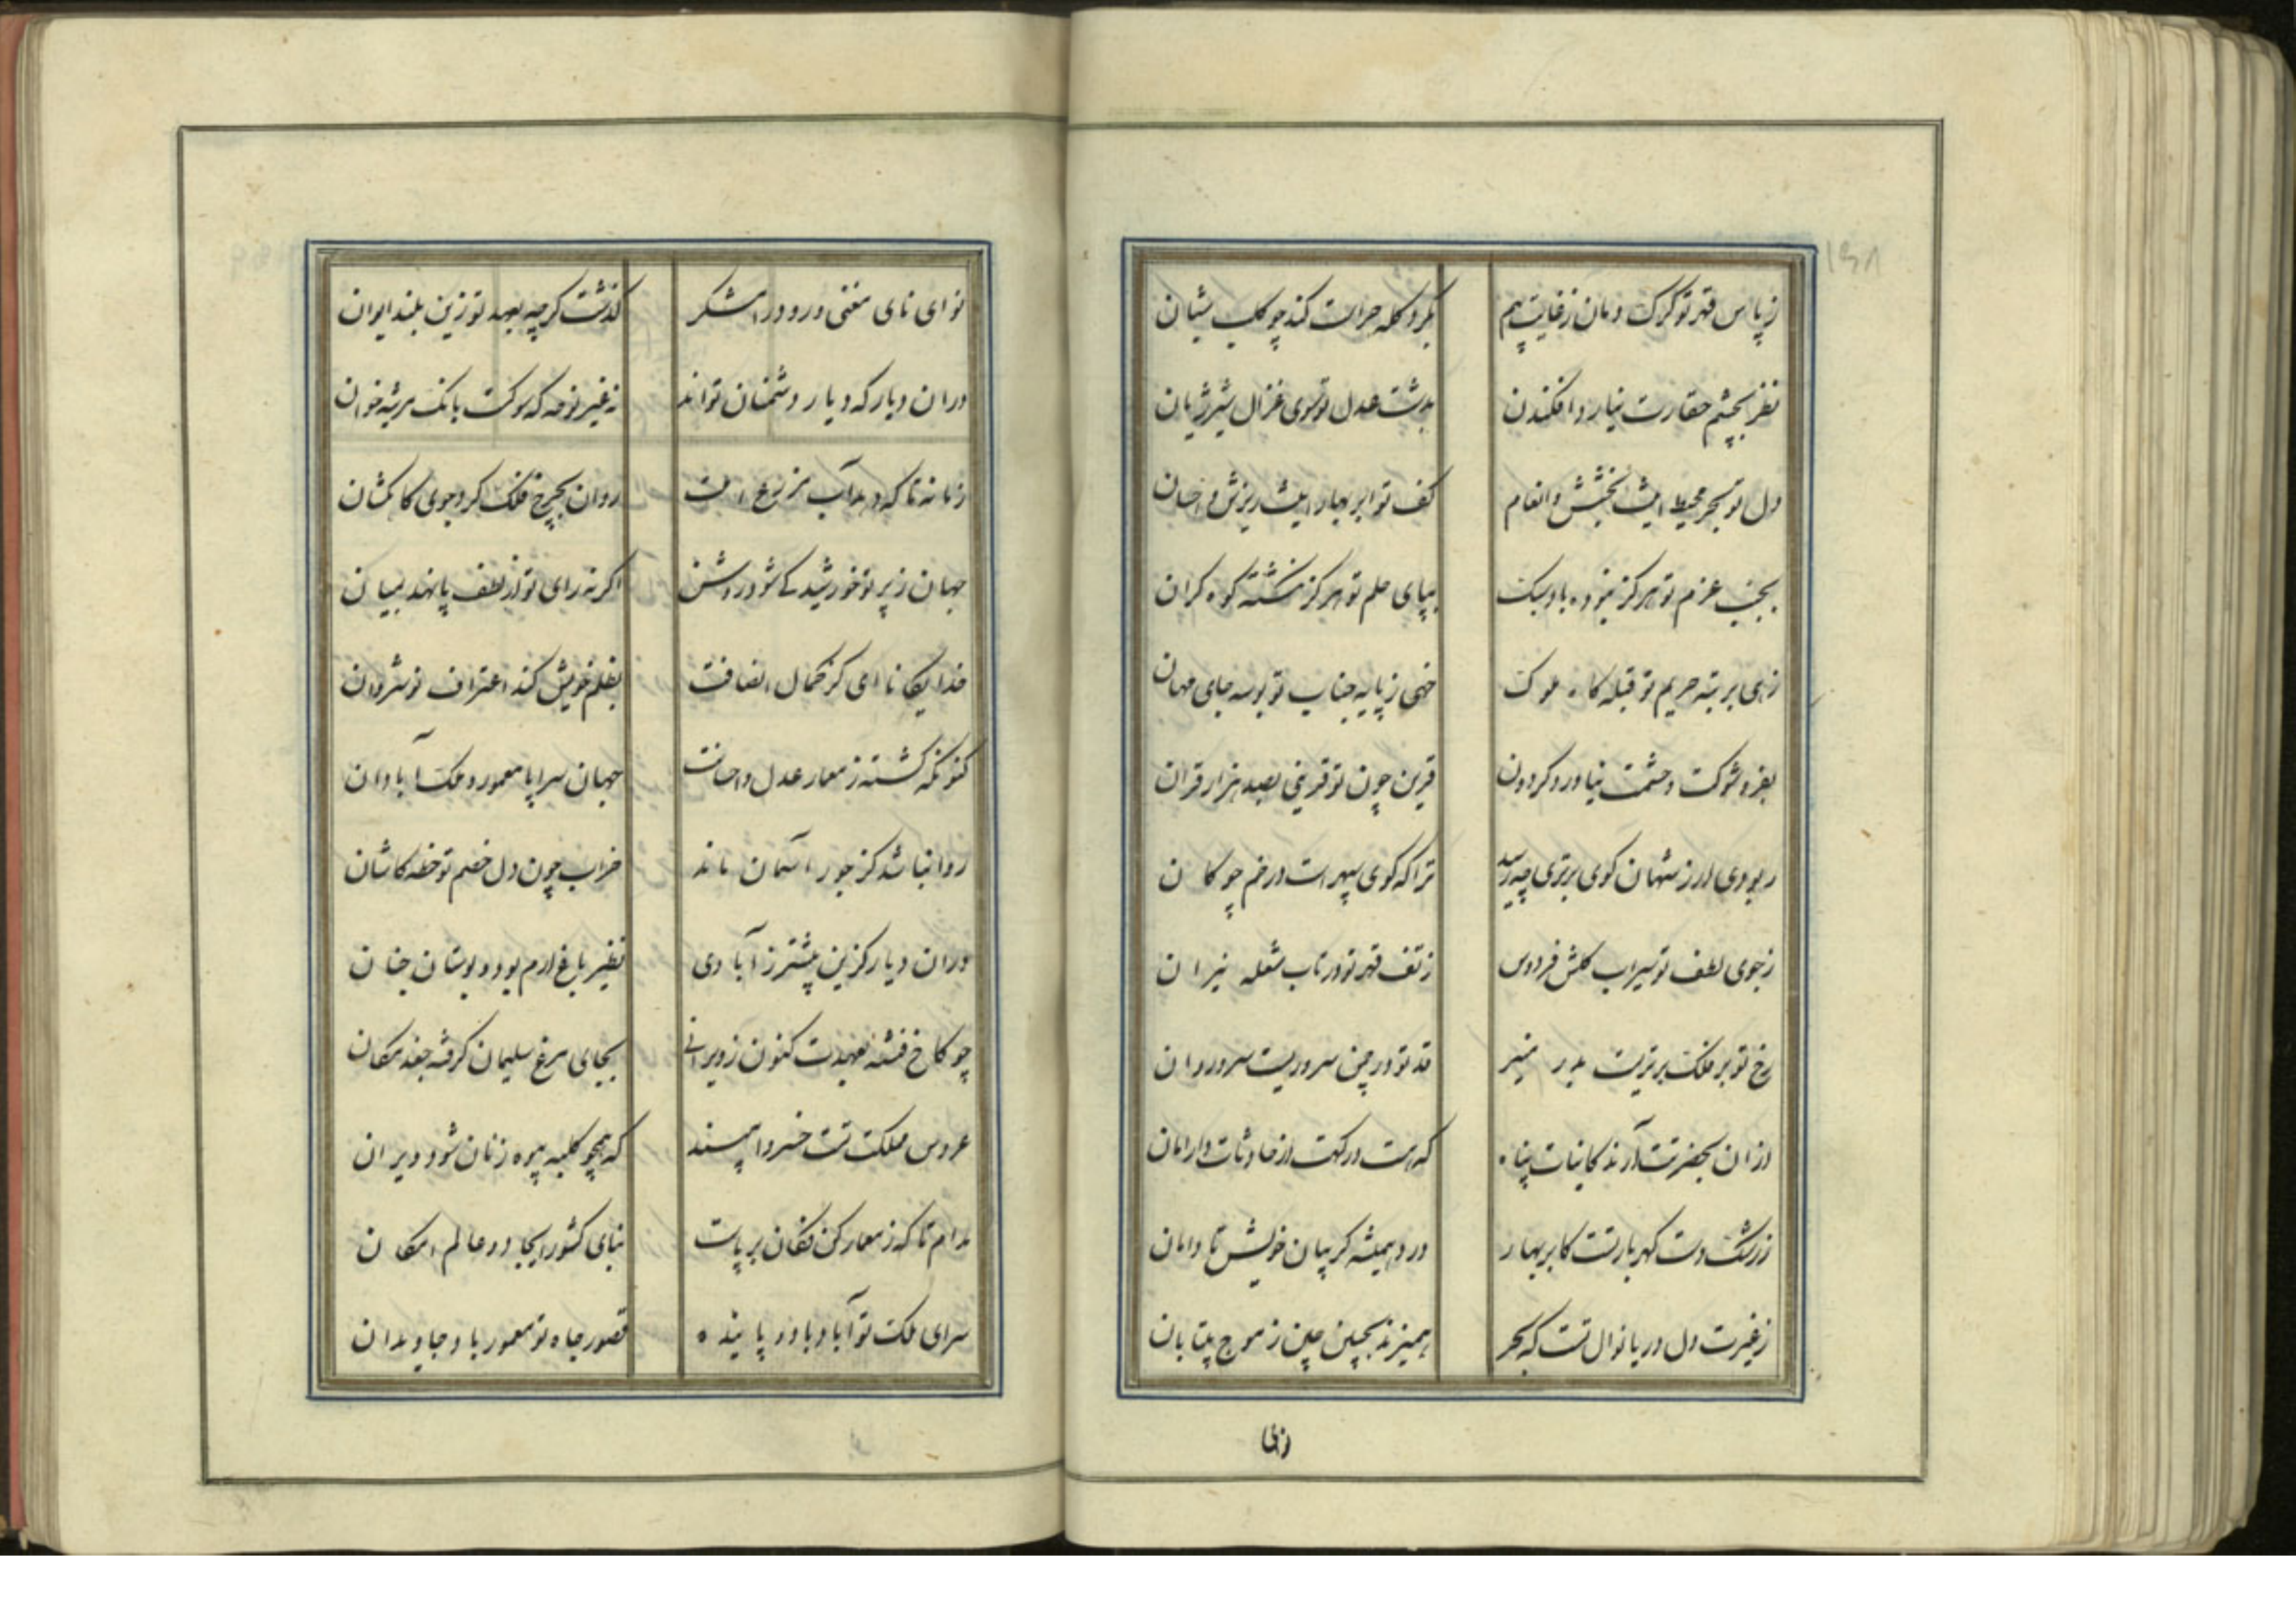 ۱۶۸
ز پاس قهر تو کرک دمان ز غایت بیم
بکرد کله حراست کند چو کلب شبان
نظر بچشم حقارت نیارد افکندن
بدشت عدل تو سوی غزال شیر ژیان
دل تو بحر محیط است بخشش و انعام
کف تو ابر بهار است ریزش و احسان
بجنب عزم تو هرکز نبوده باد سبک
بپای حلم تو هرکز نکشته کوه کران
زهی برتبه حریم تو قبله کاه ملوک
خهی ز پایه جناب تو بوسه جای مهان
بفر و شوکت و حشمت نیاورد کردون
قرین چون تو قرینی بصد هزار قران
ربودی ار ز شهان کوی برتری چه رسد
ترا که کوی سپهر است در خم چوکان
ز جوی لطف تو سیراب کلشن فردوس
ز تف قهر تو در تاب شعله نیران
رخ تو بر فلک برتریست بدر منیر
قد تو در چمن سروریست سرو روان
از ان بحضرتت آرند کاینات پناه
که هست درکهت از حادثات دار امان
ز رشک دست کهربار تست کابر بهار
درد همیشه کریبان خویش تا دامان
ز غیرت دل دریا نوال تست که بحر
همیزند بجبین چین ز موج بیتابان
نوای
نوای نای مغنی و رود رامشکر
کذشت کرچه بعهد تو زین بلند ایوان
دران دیار که دیار دشمنان تواند
نه غیر نوحه که کوکت بانک مرثیه خوان
زمانه تا که دهد آب مزرع
روان بچرخ فلک کرد جوی کاهکشان
جهان ز پرتو خورشید کی شود روشن
اکر نه رای تو از لطف پا نهد بمیان
خدایکانا ای کز کمال انصافت
بظلم خویش کند اعتراف نوشروان
کنونکه کشته ز معمار عدل و احسانت
جهان سراپا معمور و ملک آبادان
روا نباشد کز جور آسمان ماند
خراب چون دل خصم تو خطه کاشان
دران دیار کزین پیشتر ز آبادی
نظیر باغ ارم بود و بوستان جنان
چو کاخ فتنه بعهدت کنون ز ویرانی
بجای مرغ سلیمان کرفته جغد مکان
عروس مملکت تست خسروا مپسند
که همچو کلبه پیره زنان شود ویران
مدام تا که ز معمار کن فکان برپاست
بنای کشور ایجاد و عالم امکان
سرای ملک تو آباد باد و پاینده
قصور جاه تو معمور باد و جاویدان